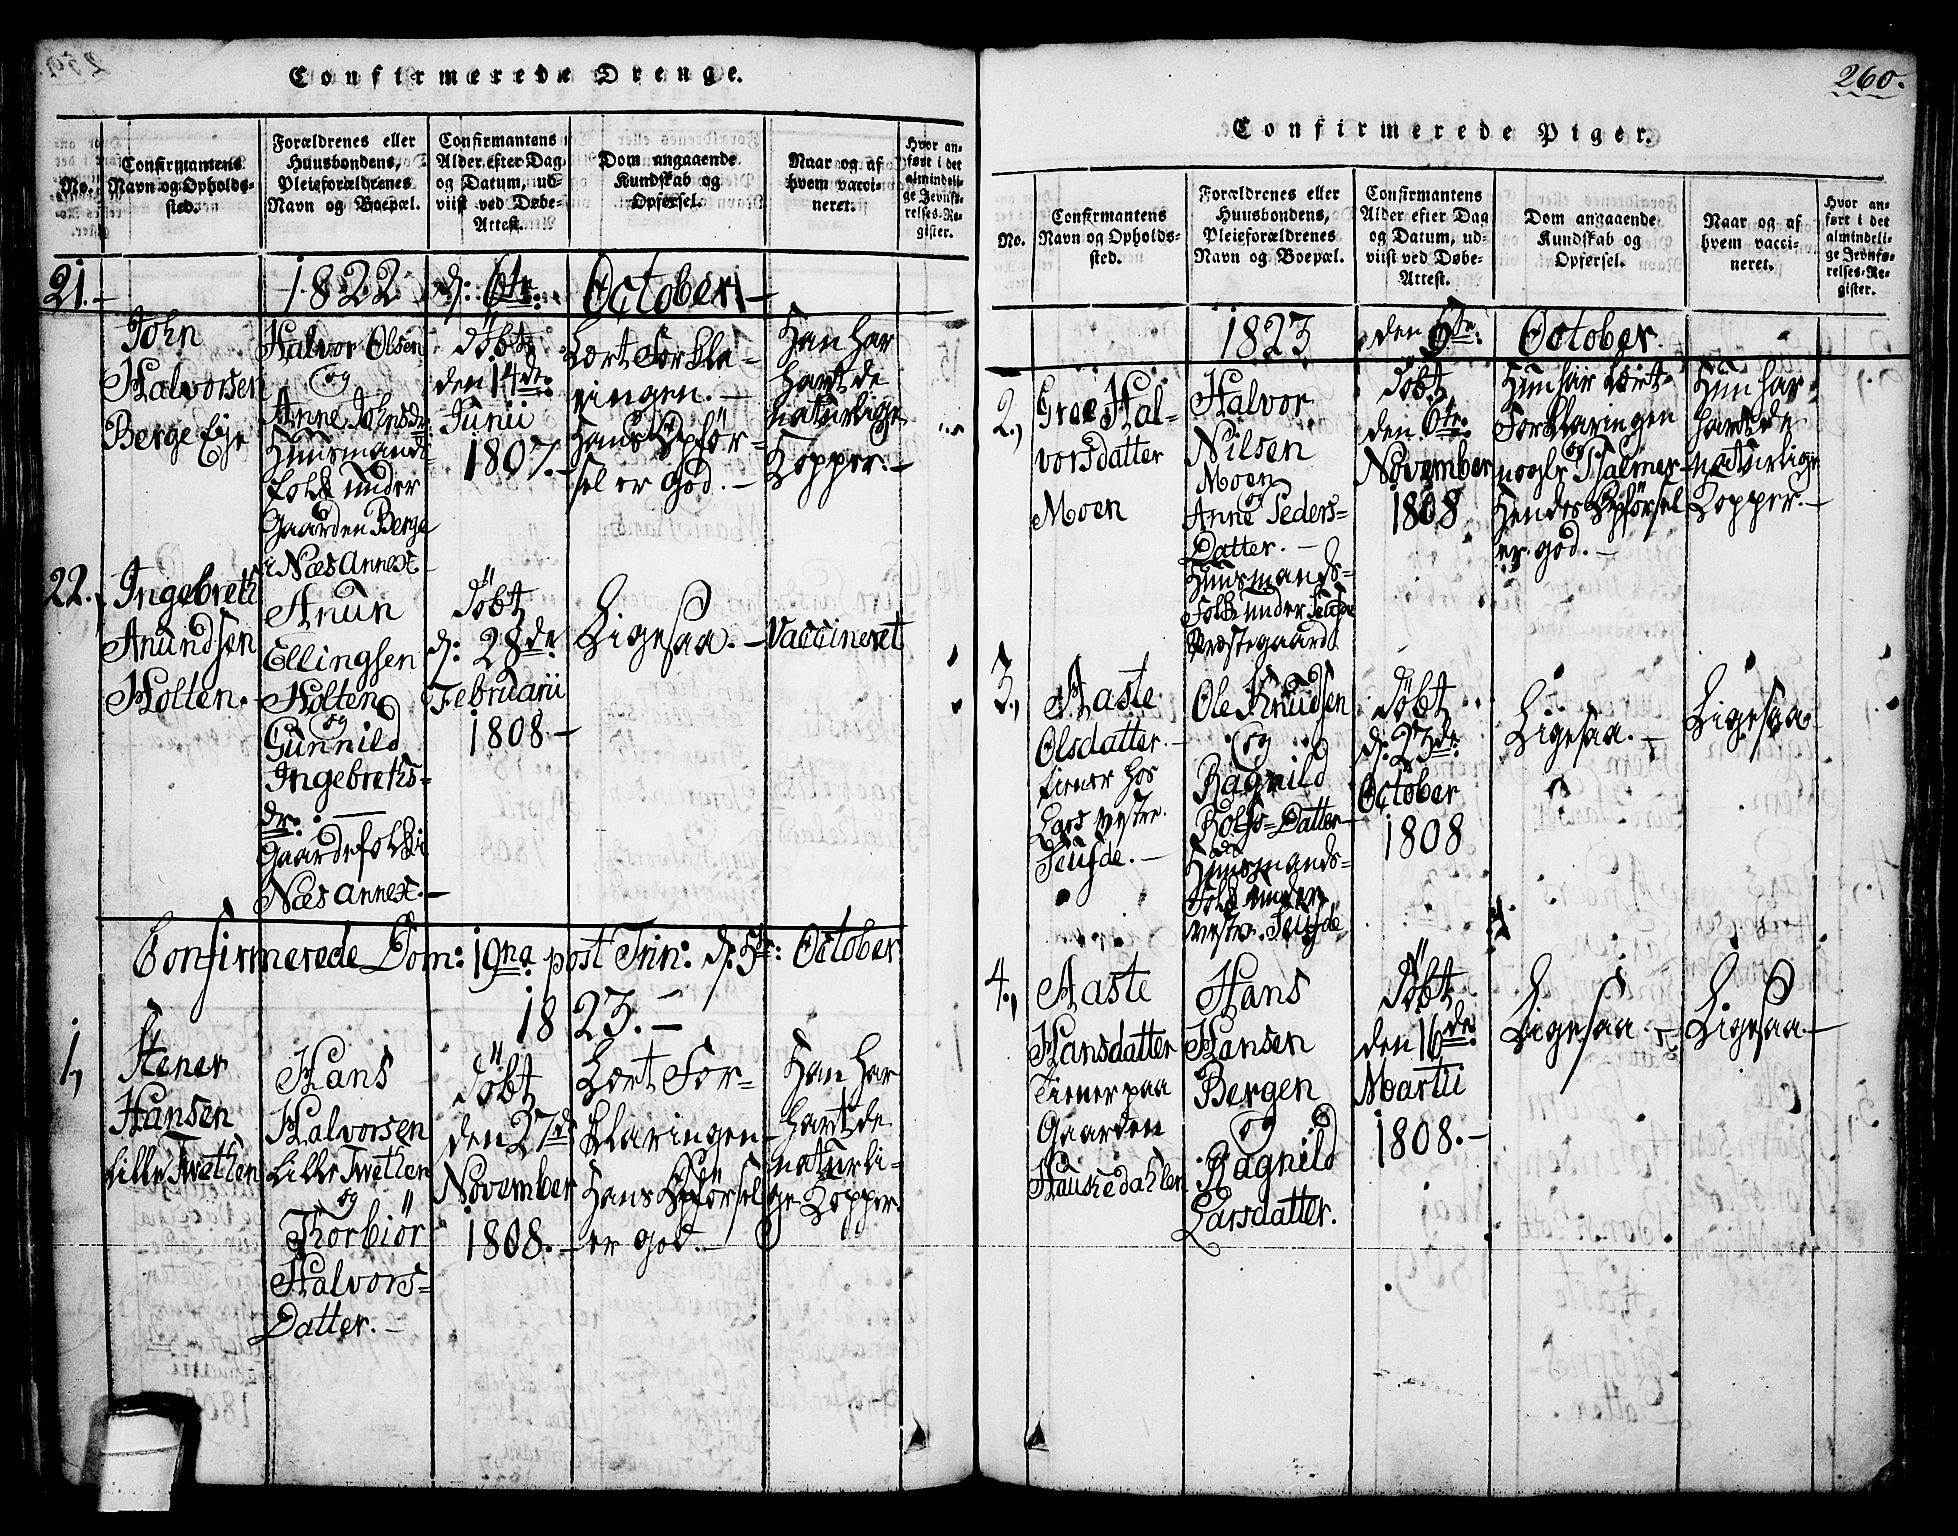 Confirmerede Drenge.
No.
Confirmantens
Navn og Opholds-
sted.
Forældrenes eller
Huusbondens,
Pleieforældrenes
Navn og Boepæl.
Confirmantens
Alder efter Dag
og Datum, ud-
viist ved Døbe-
Attest.
Dom angaaende
Kundskab og
Opførsel.
Naar og af
hvem vacci-
neret.
Hvor an-
ført i det
almindeli-
ge Jevnfø-
relses-Re-
gister.
1822 d: 6te: October. –
21. –
John
Halvorsen
Berge Eje
Halvor Olsen
og
Anne Johnsdr
Huusmands-
folk under
Gaarden Berge
i Næs Annext
döbt
den 14de:
Junii
1807. –
Lært Forkla-
ringen. –
Hans Opför-
sel er god. –
Han har
havt de
naturlige
Kopper. –
22.
Ingebreth
Anundsen
Holten. –
Anun
Ellingsen
Holten
og
Gunnild
Ingebreths-
dr: –
Gaardefolk i
Næs annext. –
döbt
d: 28de
Februarii
1808 –
Ligesaa. –
Vaccineret
Confirmerede Dom: 19na post Trin: d: 5te: October
1823. –
1,
Stener
Hansen
Lille Twethen
Hans
Halvorsen
Lille Twethen
og
Thorbiör
Halvors-
Datter. –
döbt
den 27de
November
1808. –
Lært For-
klaringen –
Hans Opförsel
er god. –
Han har
havt de
naturli-
ge Kopper
260.
Confirmerede Piger.
No.
Confirmantens
Navn og Opholds-
sted.
Forældrenes eller
Huusbondens,
Pleieforældrenes
Navn og Boepæl.
Confirmantens
Alder efter Dag
og Datum, ud-
viist ved Døbe-
Attest.
Dom angaaende
Kundskab og
Opførsel.
Naar og af
hvem vacci-
neret.
Hvor an-
ført i det
almindeli-
ge Jevnfø-
relses-Re-
gister.
1823 den 5te: October.
2.,
Groe Hal-
vorsdatter
Moen
Halvor
Nilsen
Moen
og
Anne Peders-
Datter. –
Huusmands-
Folk under
Præstegaard
döbt
den 6te:
November
1808
Hun har lært
Forklaringen
og
nogle Psalmer –
Hendes Opförsel
er god. –
Hun har
havt de
naturlige
Kopper. –
3.,
Aaste
Olsdatter. –
tiener hos
Lars vestre
Teigde. –
Ole Knudsen
og
Ragnild
Rolfs=Datter –
Huusmands-
Folk under
vestre Teigde
döbt
d: 23de
October
1808
Ligesaa. –
Ligesaa
4.,
Aaste
Hansdatter
Tiener paa
Gaarden
Haukedahlen
Hans
Hansen
Bergen
og
Ragnild
Larsdatter.
döbt
den 16de
Martii
1808. –
Ligesaa. –
Ligesaa. –